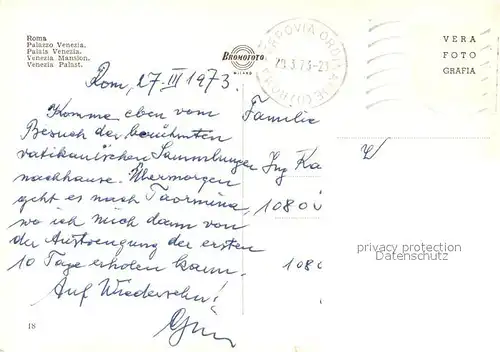 Roma
Palazzo Venezia.
Palais Venezia.
Venezia Mansion.
Venezia Palast.
BROMOFOTO
MILANO
VERA
FOTO
GRAFIA
Rom, 27-III 1973.
Komme eben vom
Besuch der berühmten
vatikanischen Sammlungen
nachhause. Übermorgen
geht es nach Taormina,
wo ich mich dann von
der Anstrengung der ersten
10 Tage erholen kann.
Auf Wiedersehn!
Familie
Ing Ka
1080
108
privacy protection
Datenschutz
18